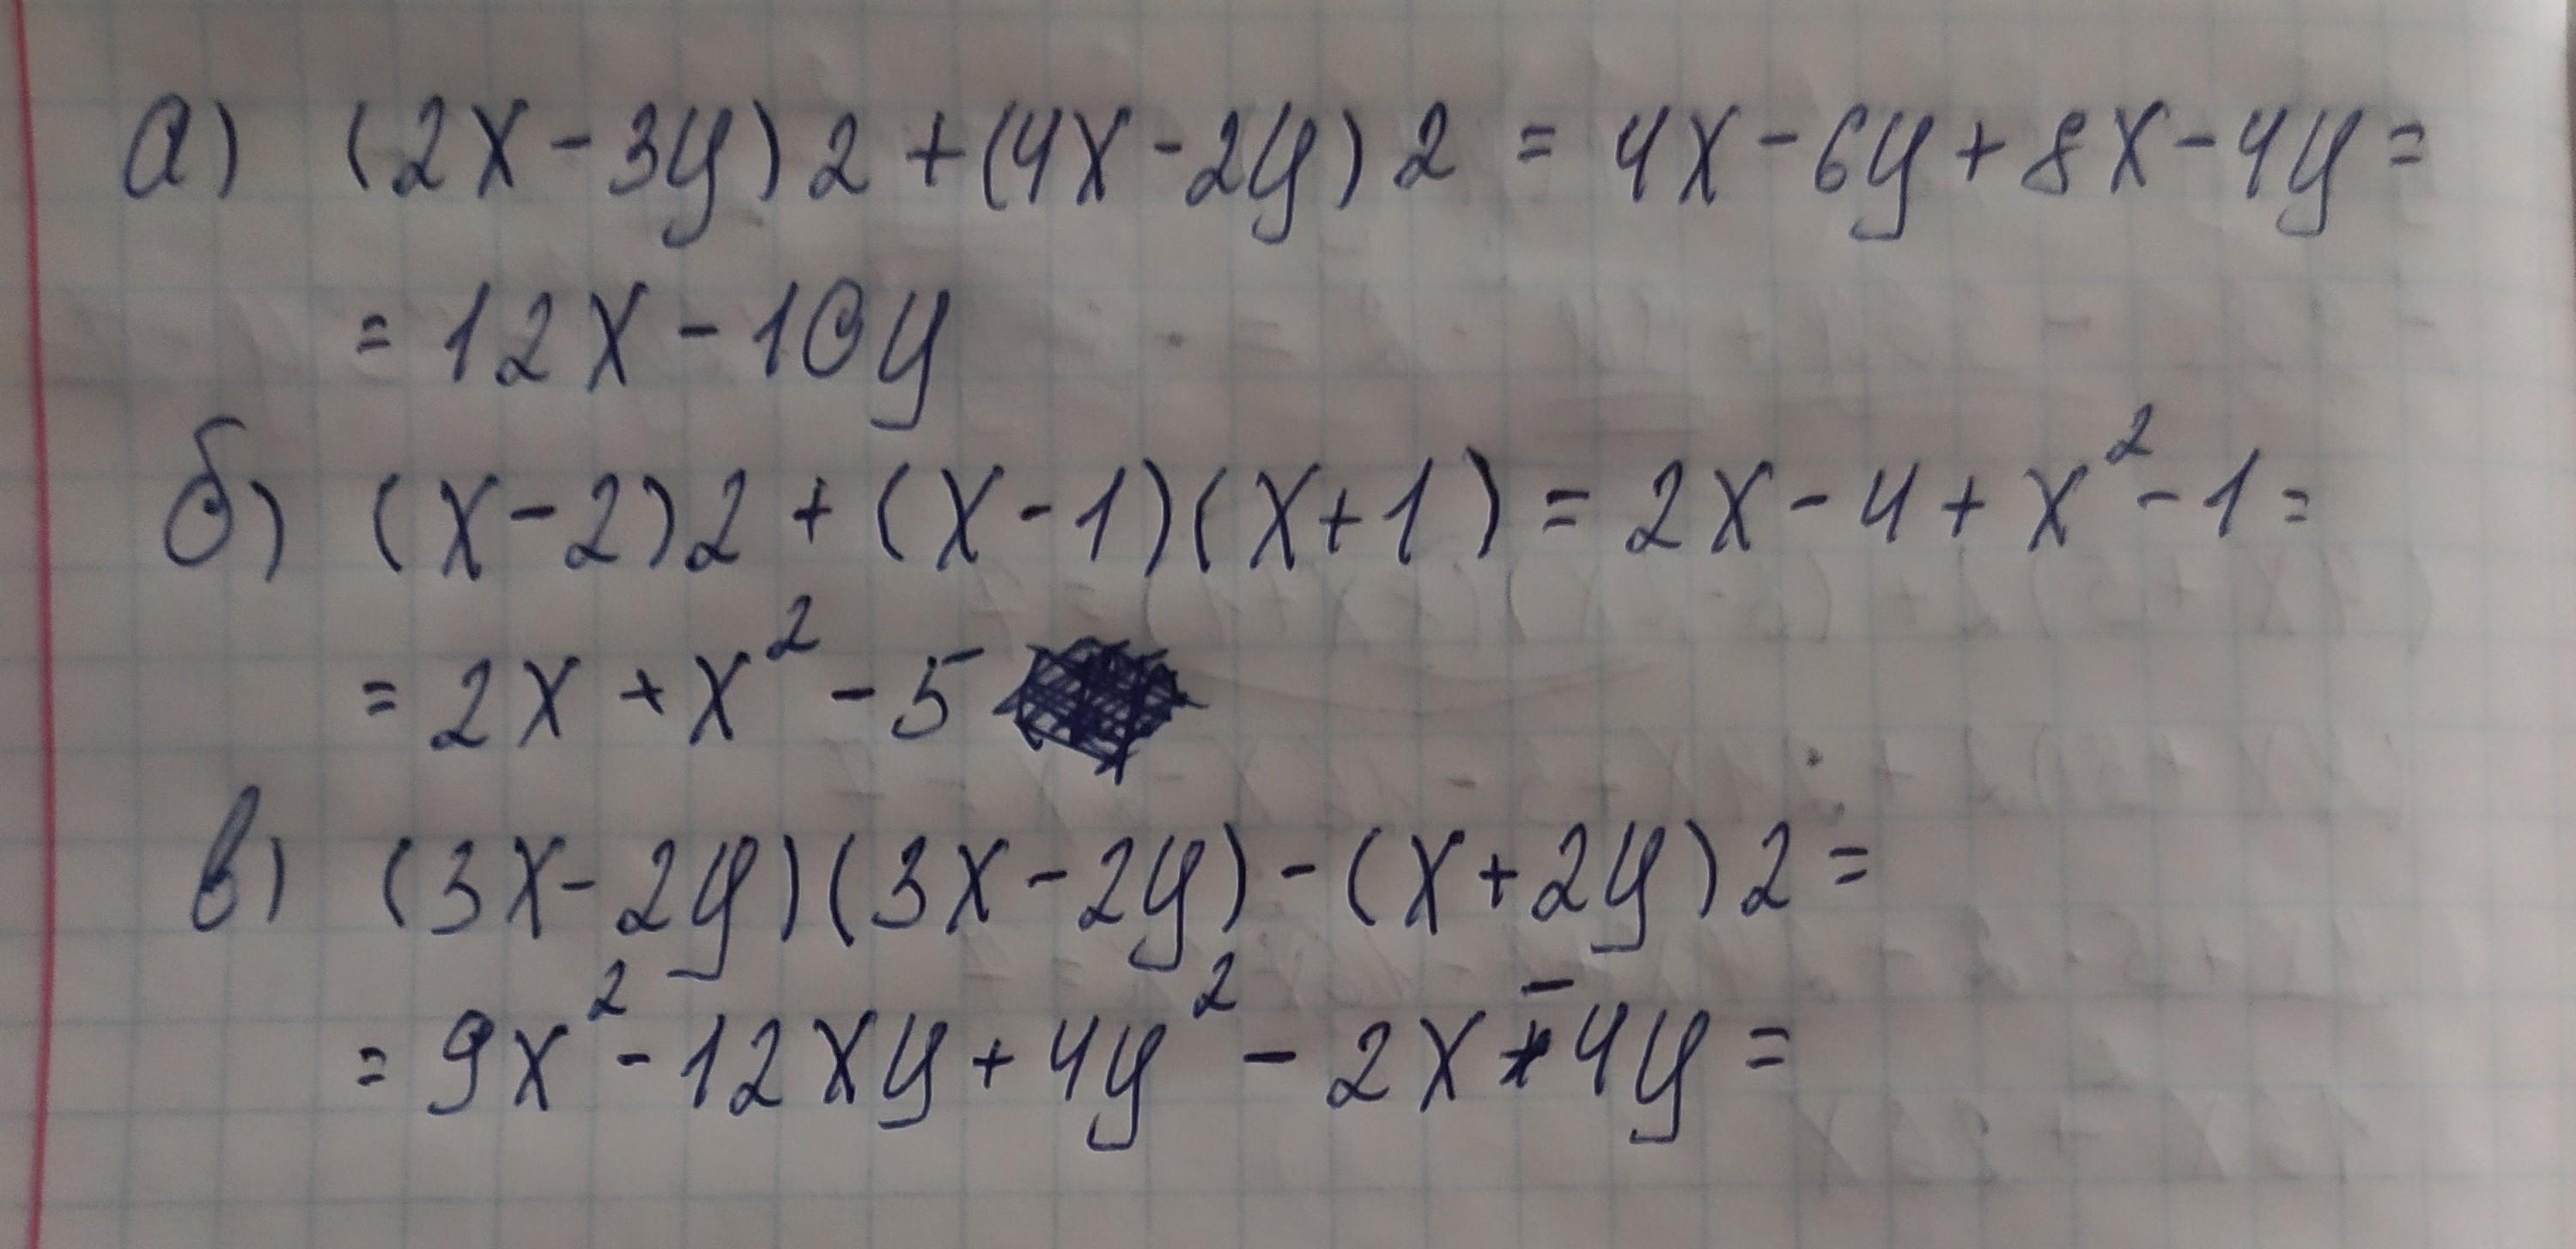 а) (2x-3y)2+(4x-2y)2=4x-6y+8x-4y=
=12x-10y
б) (x-2)2+(x-1)(x+1)=2x-4+x²-1=
=2x+x²-5
в) (3x-2y)(3x-2y)-(x+2y)2=
=9x²-12xy+4y²-2x-4y=